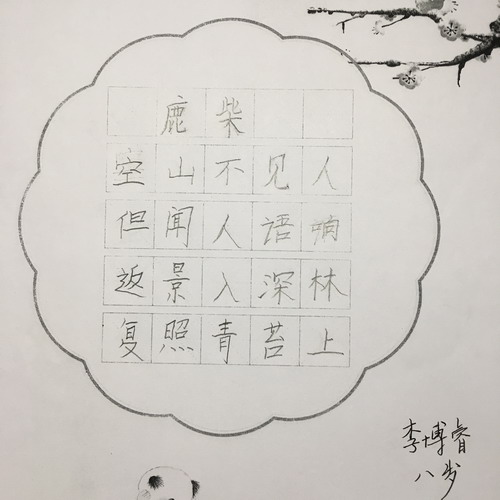 鹿柴
空山不见人
但闻人语响
返景入深林
复照青苔上
李博睿
八岁